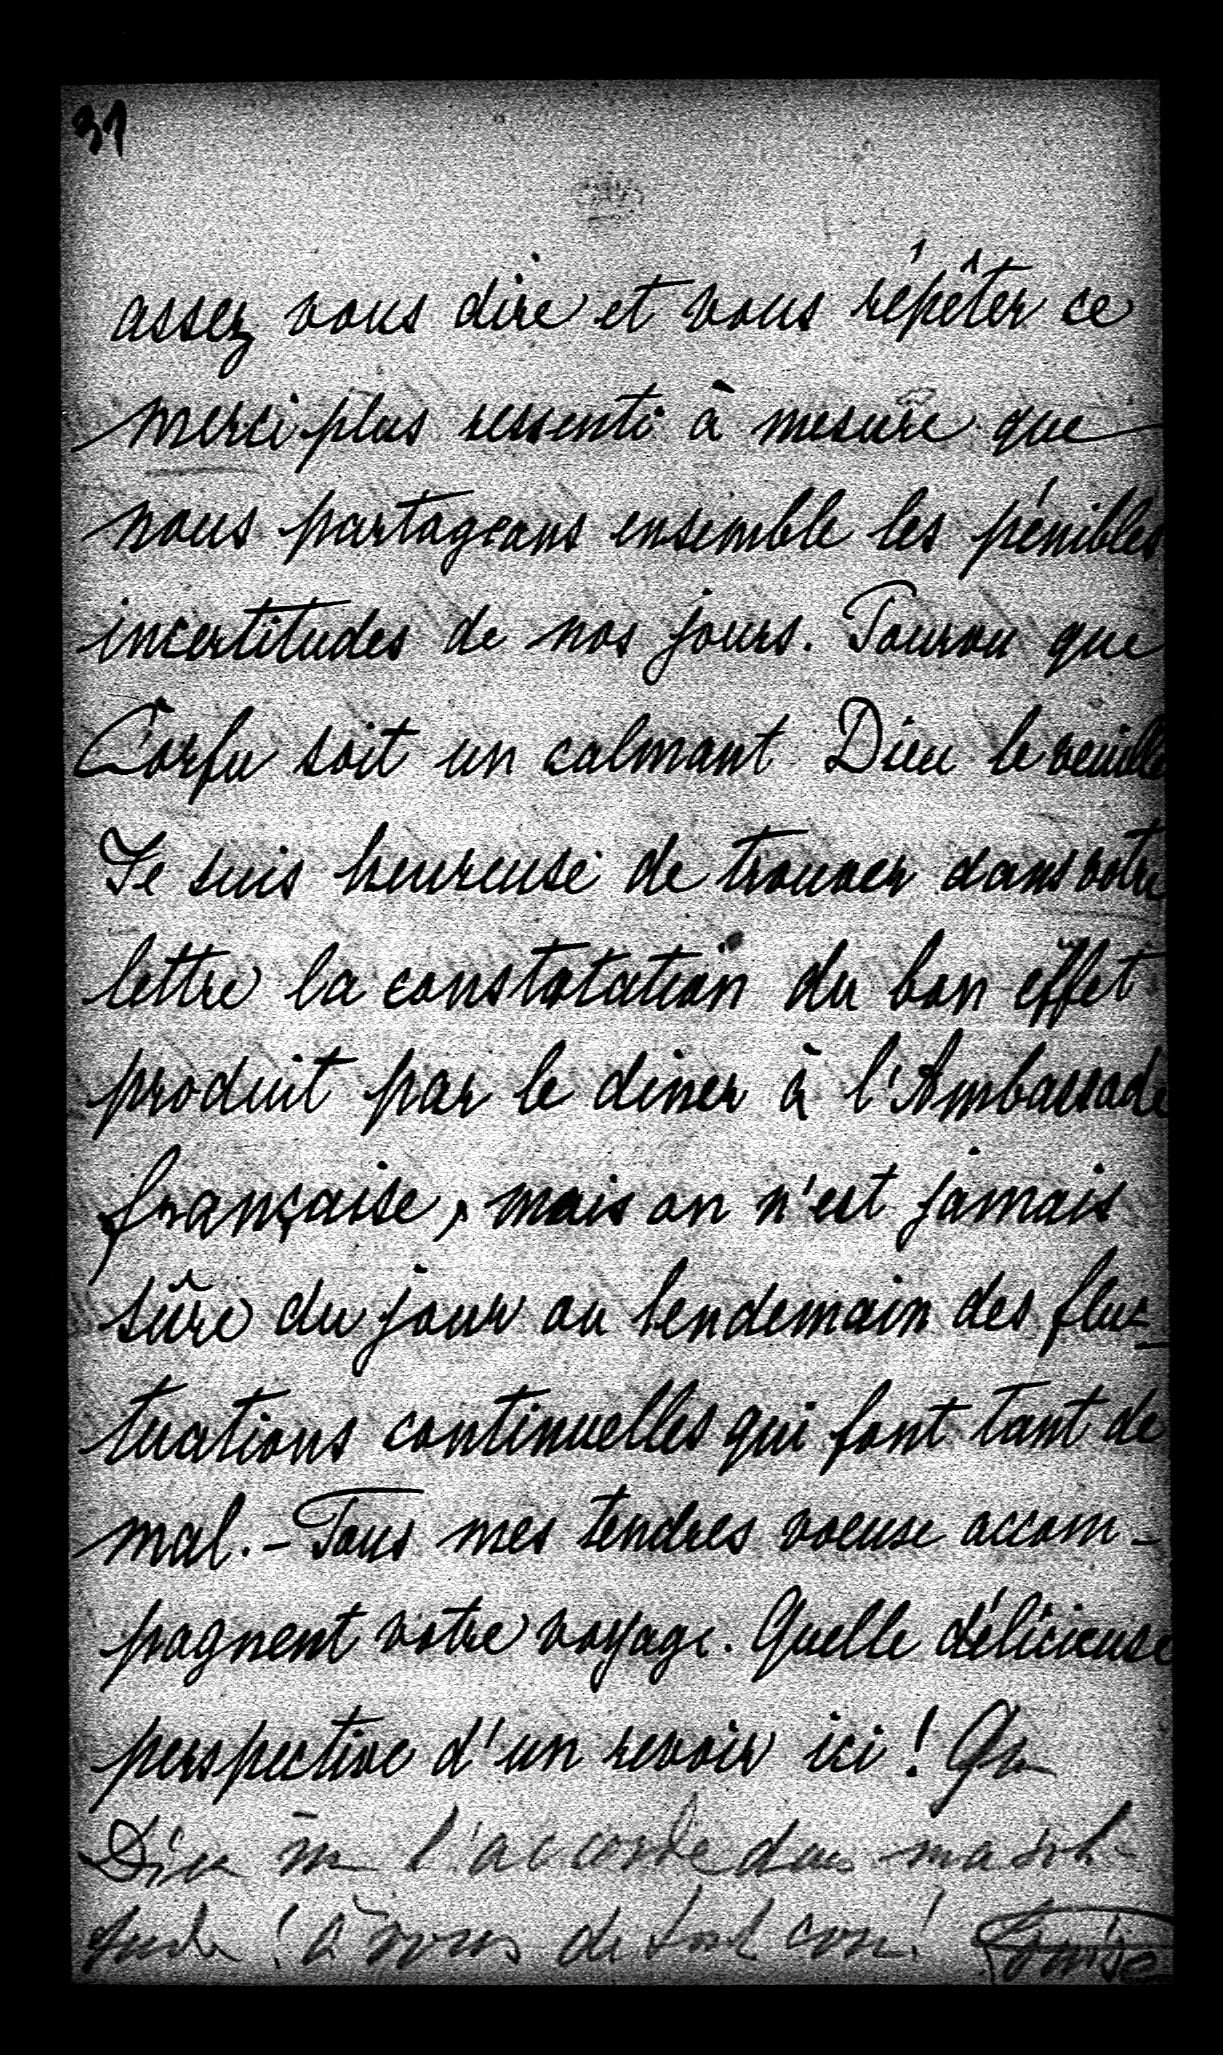 31
assez vous dire et vous répêter ce
merci plus ressenti à mesure que
nous partageons ensemble les pénibles
incertitudes de nos jours. Pourvu que
Corfu soit un calmant Dieu le veuille
Je suis heureuse de trouver dans votre
lettre la constatation du bon effet
produit par le diner à l'Ambassade
française, mais on n'est jamais
sûre du jour au lendemain des fluc-
tuations continuelles qui font tant de
mal. - Tous mes tendres voeux accom-
pagnent votre voyage. Quelle délicieuse
perspective d'un revoir ici! Que
Dieu me l'accorde dans ma soli-
tude! à vous de tout coeur! Louise